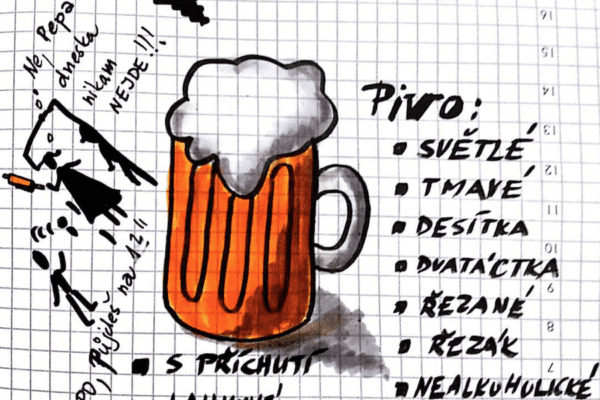 Ne, Pepa
dneska
nikam
NEJDE!!!
PO, Půjdeš na
Pivo:
▪ SVĚTLÉ
▪ TMAVÉ
▪ DESÍTKA
▪ DVATÁCTKA
▪ ŘEZANÉ
▪ ŘEZÁK
▪ NEALKOHOLICKÉ
▪ S PŘÍCHUTÍ
16
15
14
13
12
11
10
9
8
7